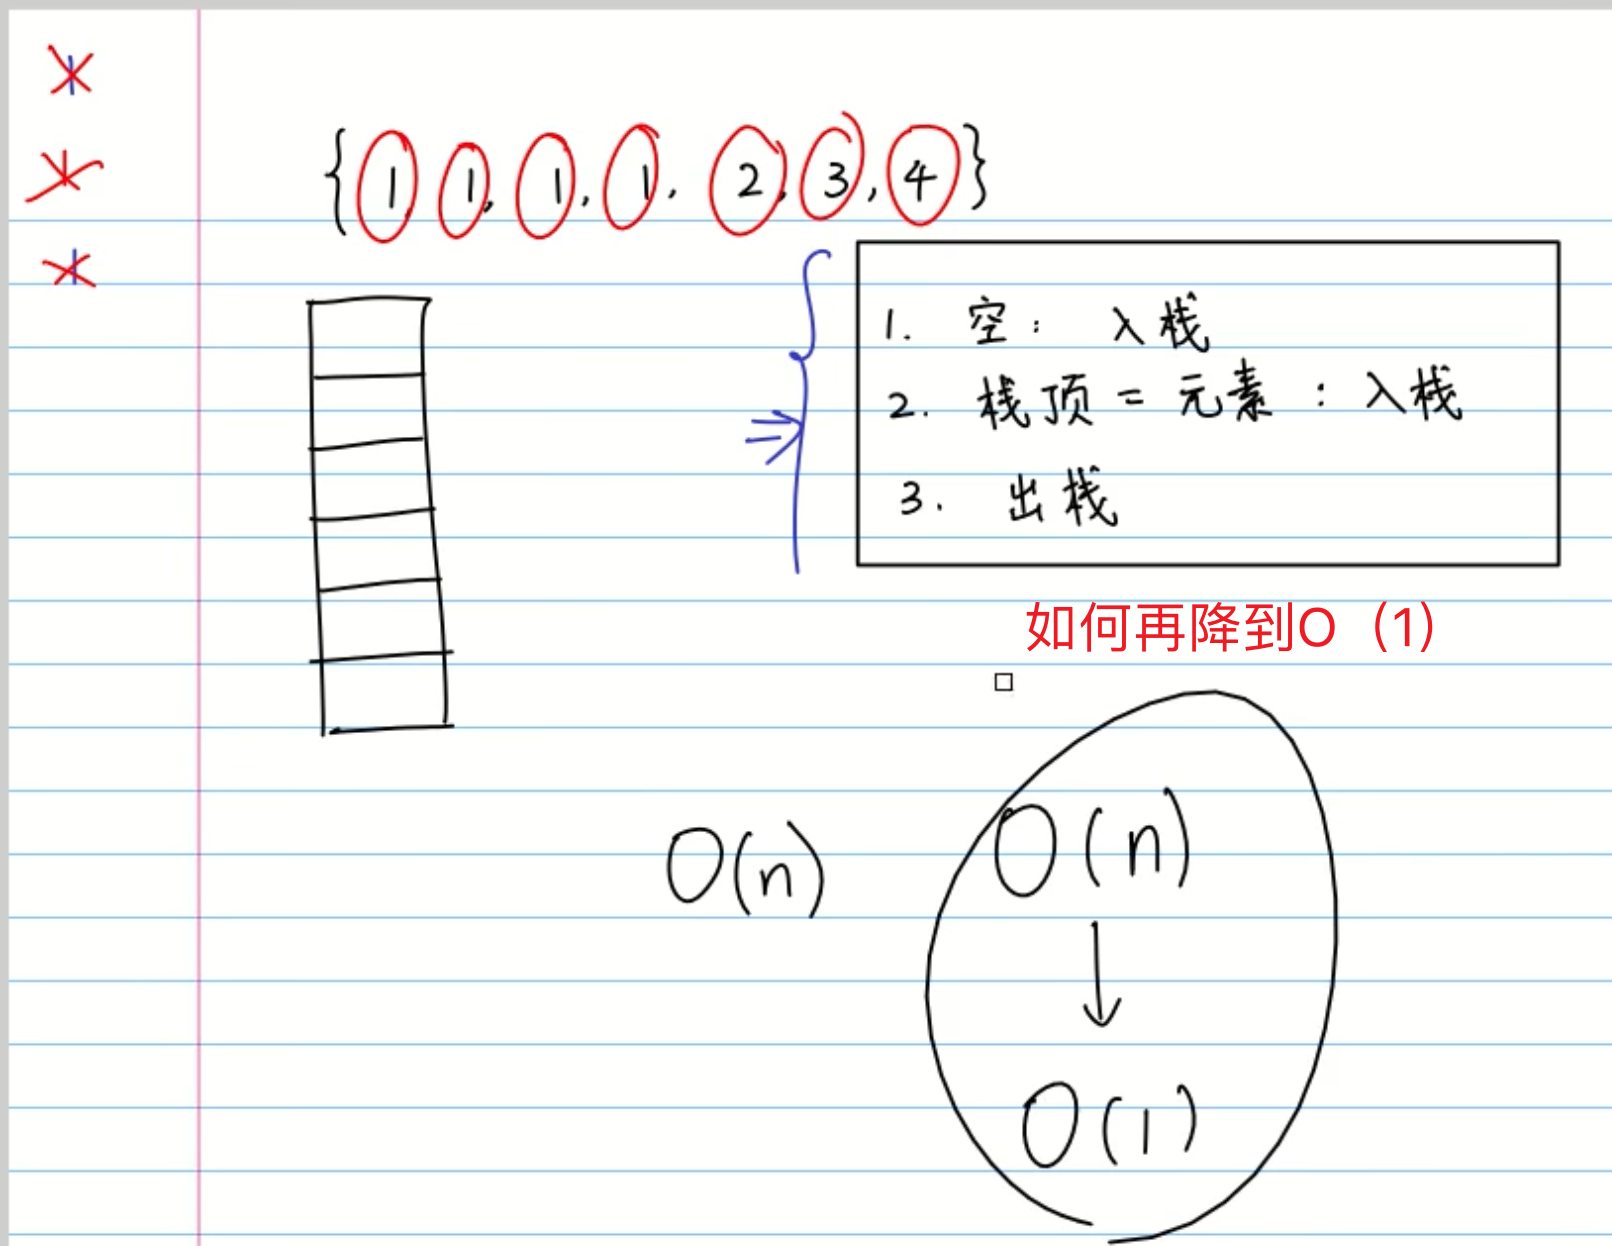 {1, 1, 1, 1, 2, 3, 4}
1. 空： 入栈
2. 栈顶 = 元素：入栈
3. 出栈
如何再降到O（1）
O(n)
O(n)
↓
O(1)